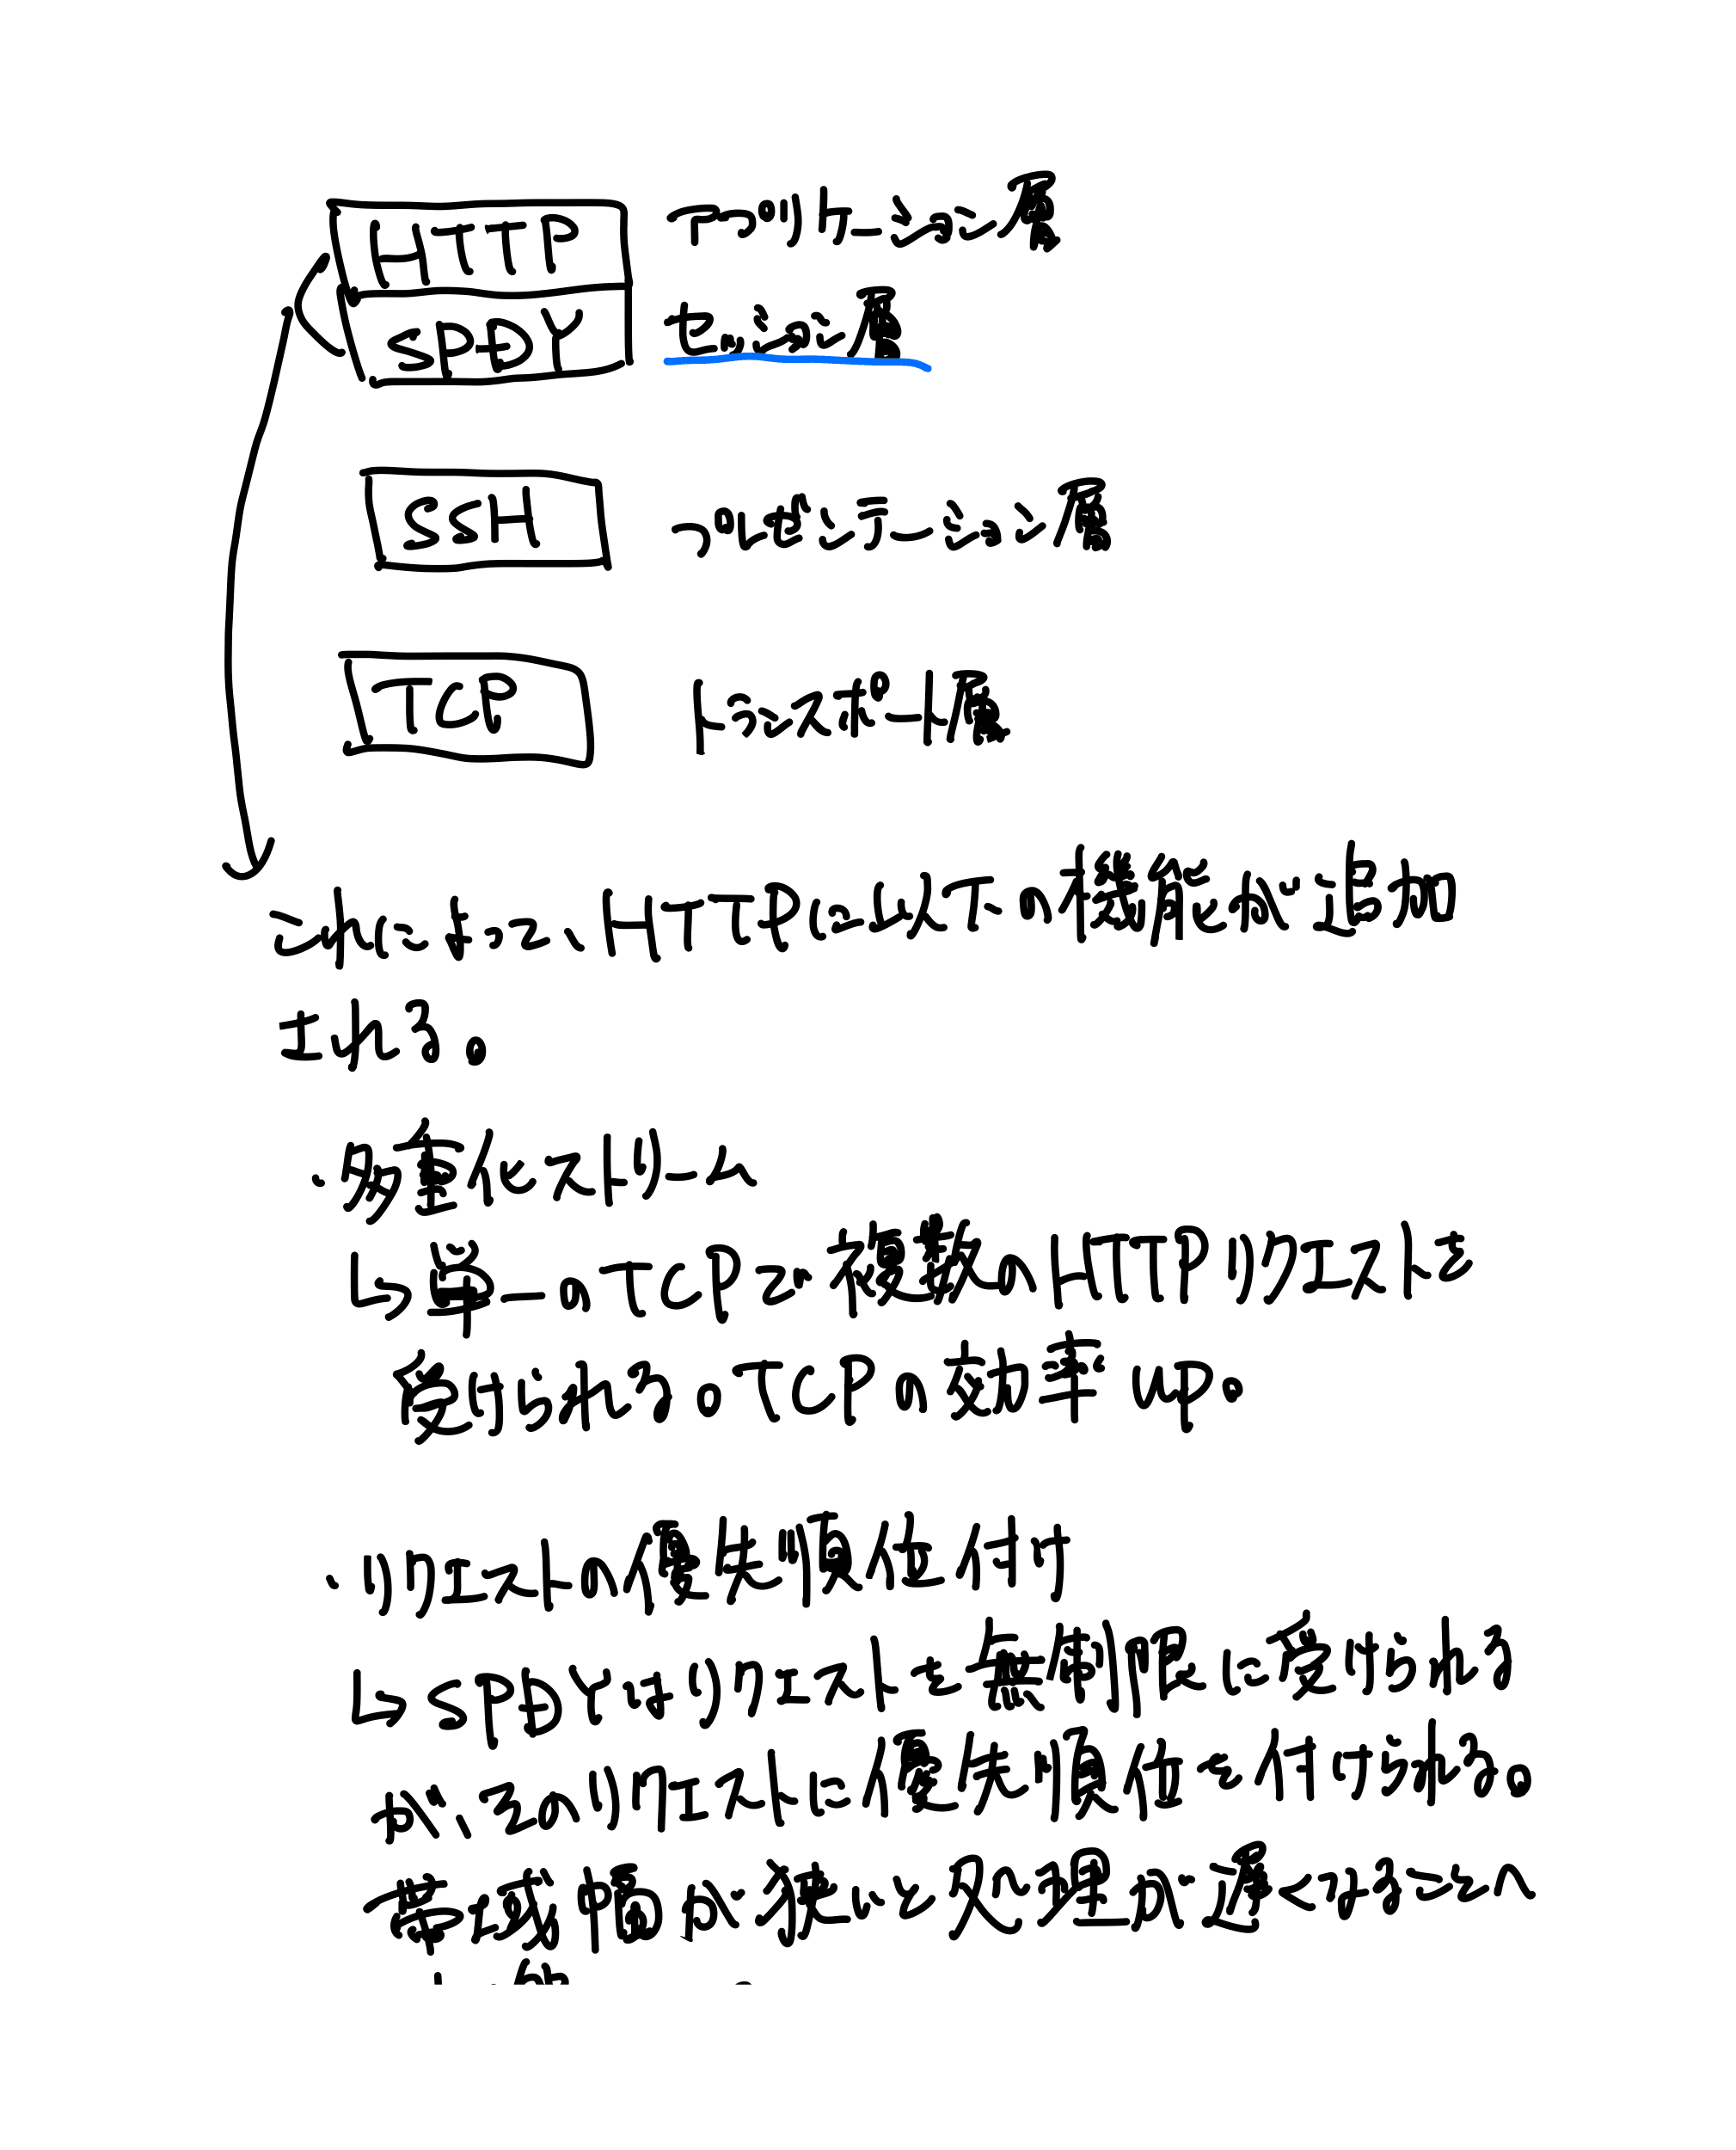 HTTP アプリケーション層
SPDY セッション層
SSH プレゼンテーション層
TCP トランスポート層
これによって、HTTPに以下の機能が追加
される。
・多重化ストリーム
↳単一のTCPで複数のHTTPリクエストを
受けられる。TCPの効率up。
・リクエストの優先順位付け
↳SPDYはリクエストを無制限に受けられる
が、そのリクエストに優先順位を付けられる。
帯域幅が狭いと処理が遅くなることへ